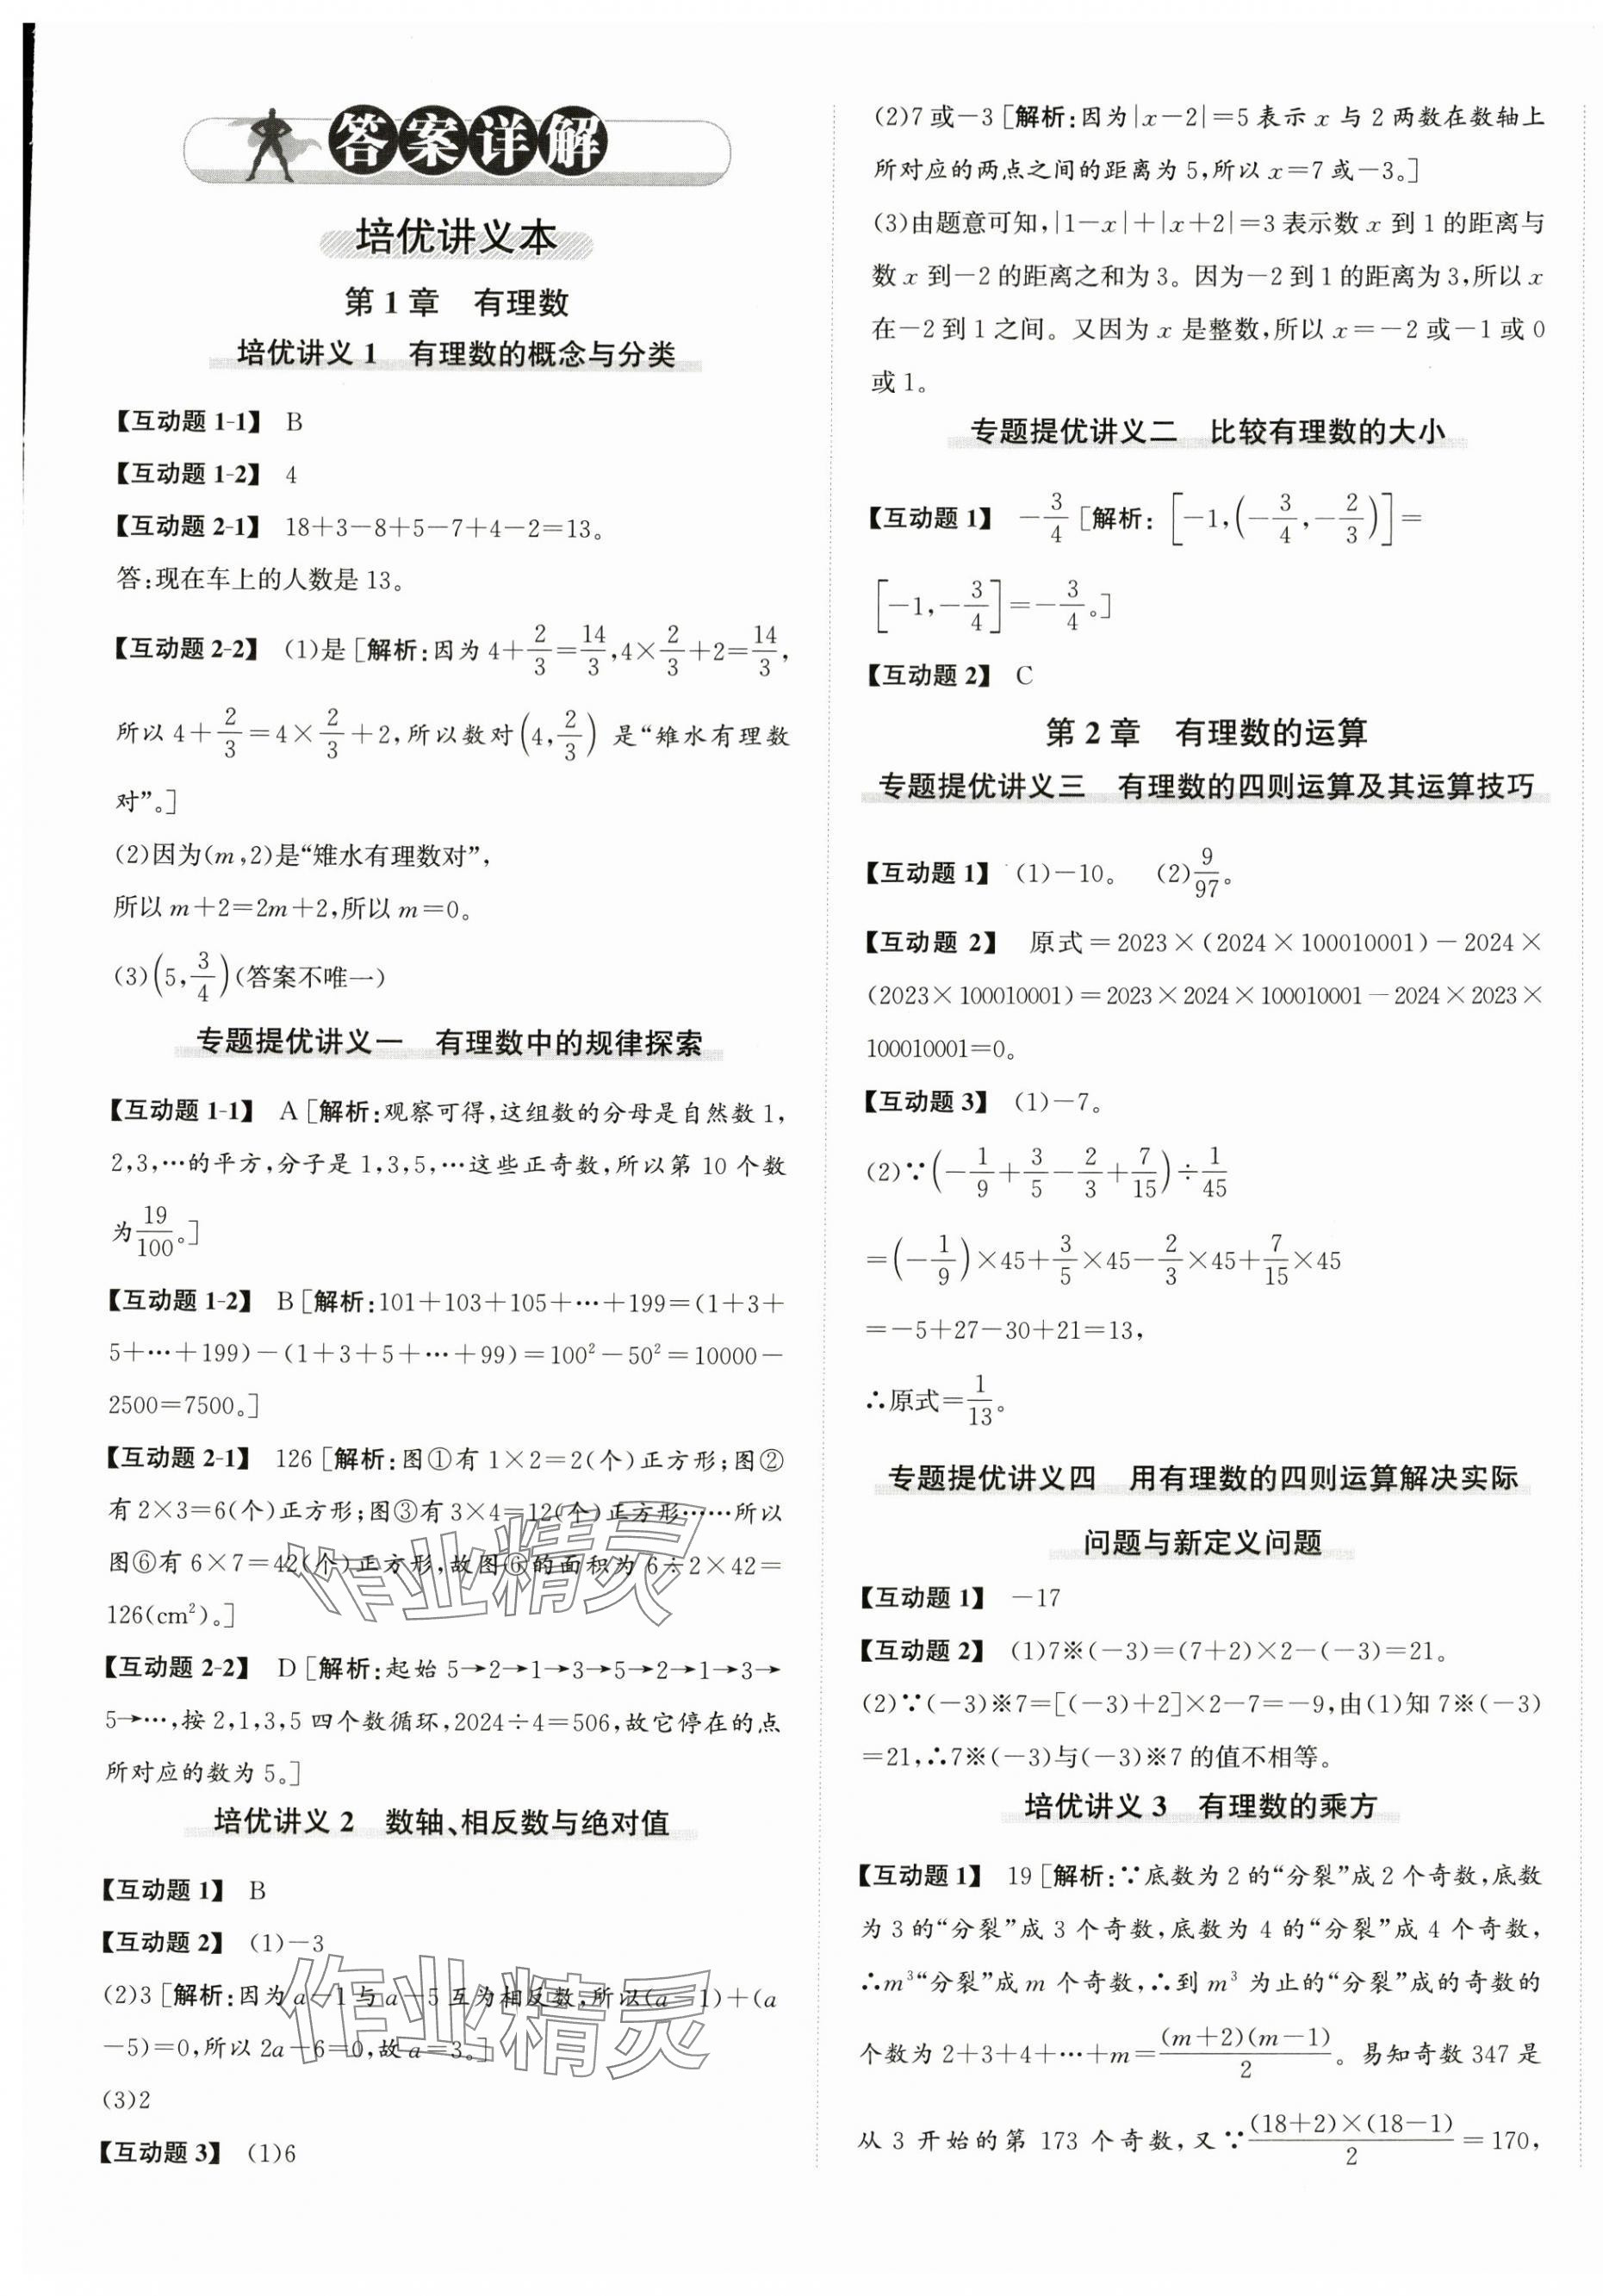 答案详解
培优讲义本
第 1 章　有理数
培优讲义 1　有理数的概念与分类
【互动题 1-1】 B
【互动题 1-2】 4
【互动题 2-1】 18+3-8+5-7+4-2=13。
答:现在车上的人数是 13。
【互动题 2-2】 (1)是 [解析:因为 4+2/3=14/3,4×2/3+2=14/3,
所以 4+2/3=4×2/3+2,所以数对(4,2/3) 是“雉水有理数
对”。]
(2)因为(m,2)是“雉水有理数对”,
所以 m+2=2m+2,所以 m=0。
(3)(5,3/4)(答案不唯一)
专题提优讲义一　有理数中的规律探索
【互动题 1-1】 A [解析:观察可得,这组数的分母是自然数 1,
2,3,…的平方,分子是 1,3,5,…这些正奇数,所以第 10 个数
为19/100。]
【互动题 1-2】 B [解析:101+103+105+…+199=(1+3+
5+…+199)-(1+3+5+…+99)=100²-50²=10000-
2500=7500。]
【互动题 2-1】 126 [解析:图①有 1×2=2(个)正方形;图②
有 2×3=6(个)正方形;图③有 3×4=12(个)正方形……所以
图⑥有 6×7=42(个)正方形,故图⑥的面积为 6÷2×42=
126(cm²)。]
【互动题 2-2】 D [解析:起始 5→2→1→3→5→2→1→3→
5→…,按 2,1,3,5 四个数循环,2024÷4=506,故它停在的点
所对应的数为 5。]
培优讲义 2　数轴、相反数与绝对值
【互动题 1】 B
【互动题 2】 (1)-3
(2)3 [解析:因为 a-1 与 a-5 互为相反数,所以(a-1)+(a
-5)=0,所以 2a-6=0,故 a=3。]
(3)2
【互动题 3】 (1)6
(2)7 或-3 [解析:因为|x-2|=5 表示 x 与 2 两数在数轴上
所对应的两点之间的距离为 5,所以 x=7 或-3。]
(3)由题意可知,|1-x|+|x+2|=3 表示数 x 到 1 的距离与
数 x 到-2 的距离之和为 3。因为-2 到 1 的距离为 3,所以 x
在-2 到 1 之间。又因为 x 是整数,所以 x=-2 或-1 或 0
或 1。
专题提优讲义二　比较有理数的大小
【互动题 1】 -3/4 [解析: [-1,(-3/4,-2/3)]=
[-1,-3/4]=-3/4。]
【互动题 2】 C
第 2 章　有理数的运算
专题提优讲义三　有理数的四则运算及其运算技巧
【互动题 1】 (1)-10。 (2)9/97。
【互动题 2】 原式=2023×(2024×100010001)-2024×
(2023×100010001)=2023×2024×100010001-2024×2023×
100010001=0。
【互动题 3】 (1)-7。
(2)∵(-1/9+3/5-2/3+7/15)÷1/45
=(-1/9)×45+3/5×45-2/3×45+7/15×45
=-5+27-30+21=13,
∴原式=1/13。
专题提优讲义四　用有理数的四则运算解决实际
问题与新定义问题
【互动题 1】 -17
【互动题 2】 (1)7※(-3)=(7+2)×2-(-3)=21。
(2)∵(-3)※7=[(-3)+2]×2-7=-9,由(1)知 7※(-3)
=21,∴7※(-3)与(-3)※7 的值不相等。
培优讲义 3　有理数的乘方
【互动题 1】 19 [解析:∵底数为 2 的“分裂”成 2 个奇数,底数
为 3 的“分裂”成 3 个奇数,底数为 4 的“分裂”成 4 个奇数,
∴m³“分裂”成 m 个奇数,∴到 m³ 为止的“分裂”成的奇数的
个数为 2+3+4+…+m=(m+2)(m-1)/2。易知奇数 347 是
从 3 开始的第 173 个奇数,又∵(18+2)×(18-1)/2=170,
作业精灵
作业精灵